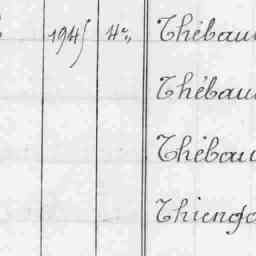 1945 4° Thébau
Thébau
Thébau
Thiengo